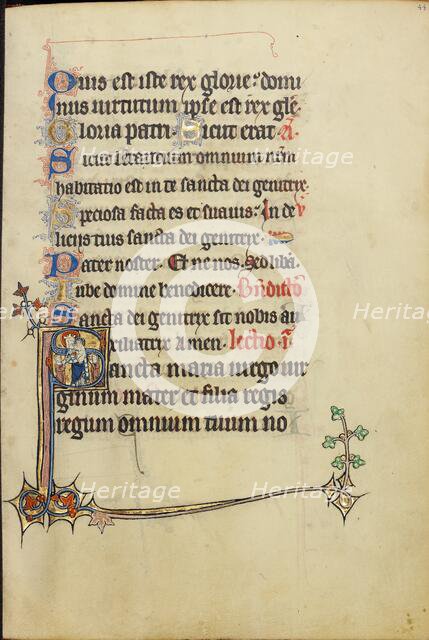 44
Quis est iste rex glorie: domi
nus uirtutum ipse est rex glẽ
Gloria patri. Sicut erat. A.
Sicut letantium omnium nrm
habitatio est in te sancta dei genitrix.
Speciosa facta es et suauis: In de
liciis tuis sancta dei genitrix.
Pater noster. Et ne nos. Sed liba
Iube domine benedicere. Bñdictio
Sancta dei genitrix sit nobis au
xiliatrix Amen. Lectio .I.
Sancta maria uirgo uir
ginum mater et filia regis
regum omnium tuum no
Heritage
Heritage
Heritage
Heritage
Heritage
Heritage
Heritage